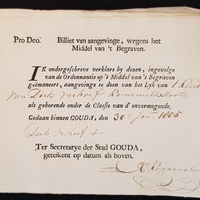 Pro Deo. Billiet van aangevinge, wegens het
Middel van 't Begraven.
IK ondergeschreve verklare by desen, ingevolge
van de Ordonnantie op 't Middel van 't Begraven
geëmaneert, aangevinge te doen van het Lyk van 1 Kind
van Dirk Verhoef
als gehorende onder de Classis van d' onvermogende.
Gedaan binnen GOUDA, den 30 Jan 1805
Dirk Verhoef +
Ter Secretarye der Stad GOUDA,
geteikent op datum als boven.